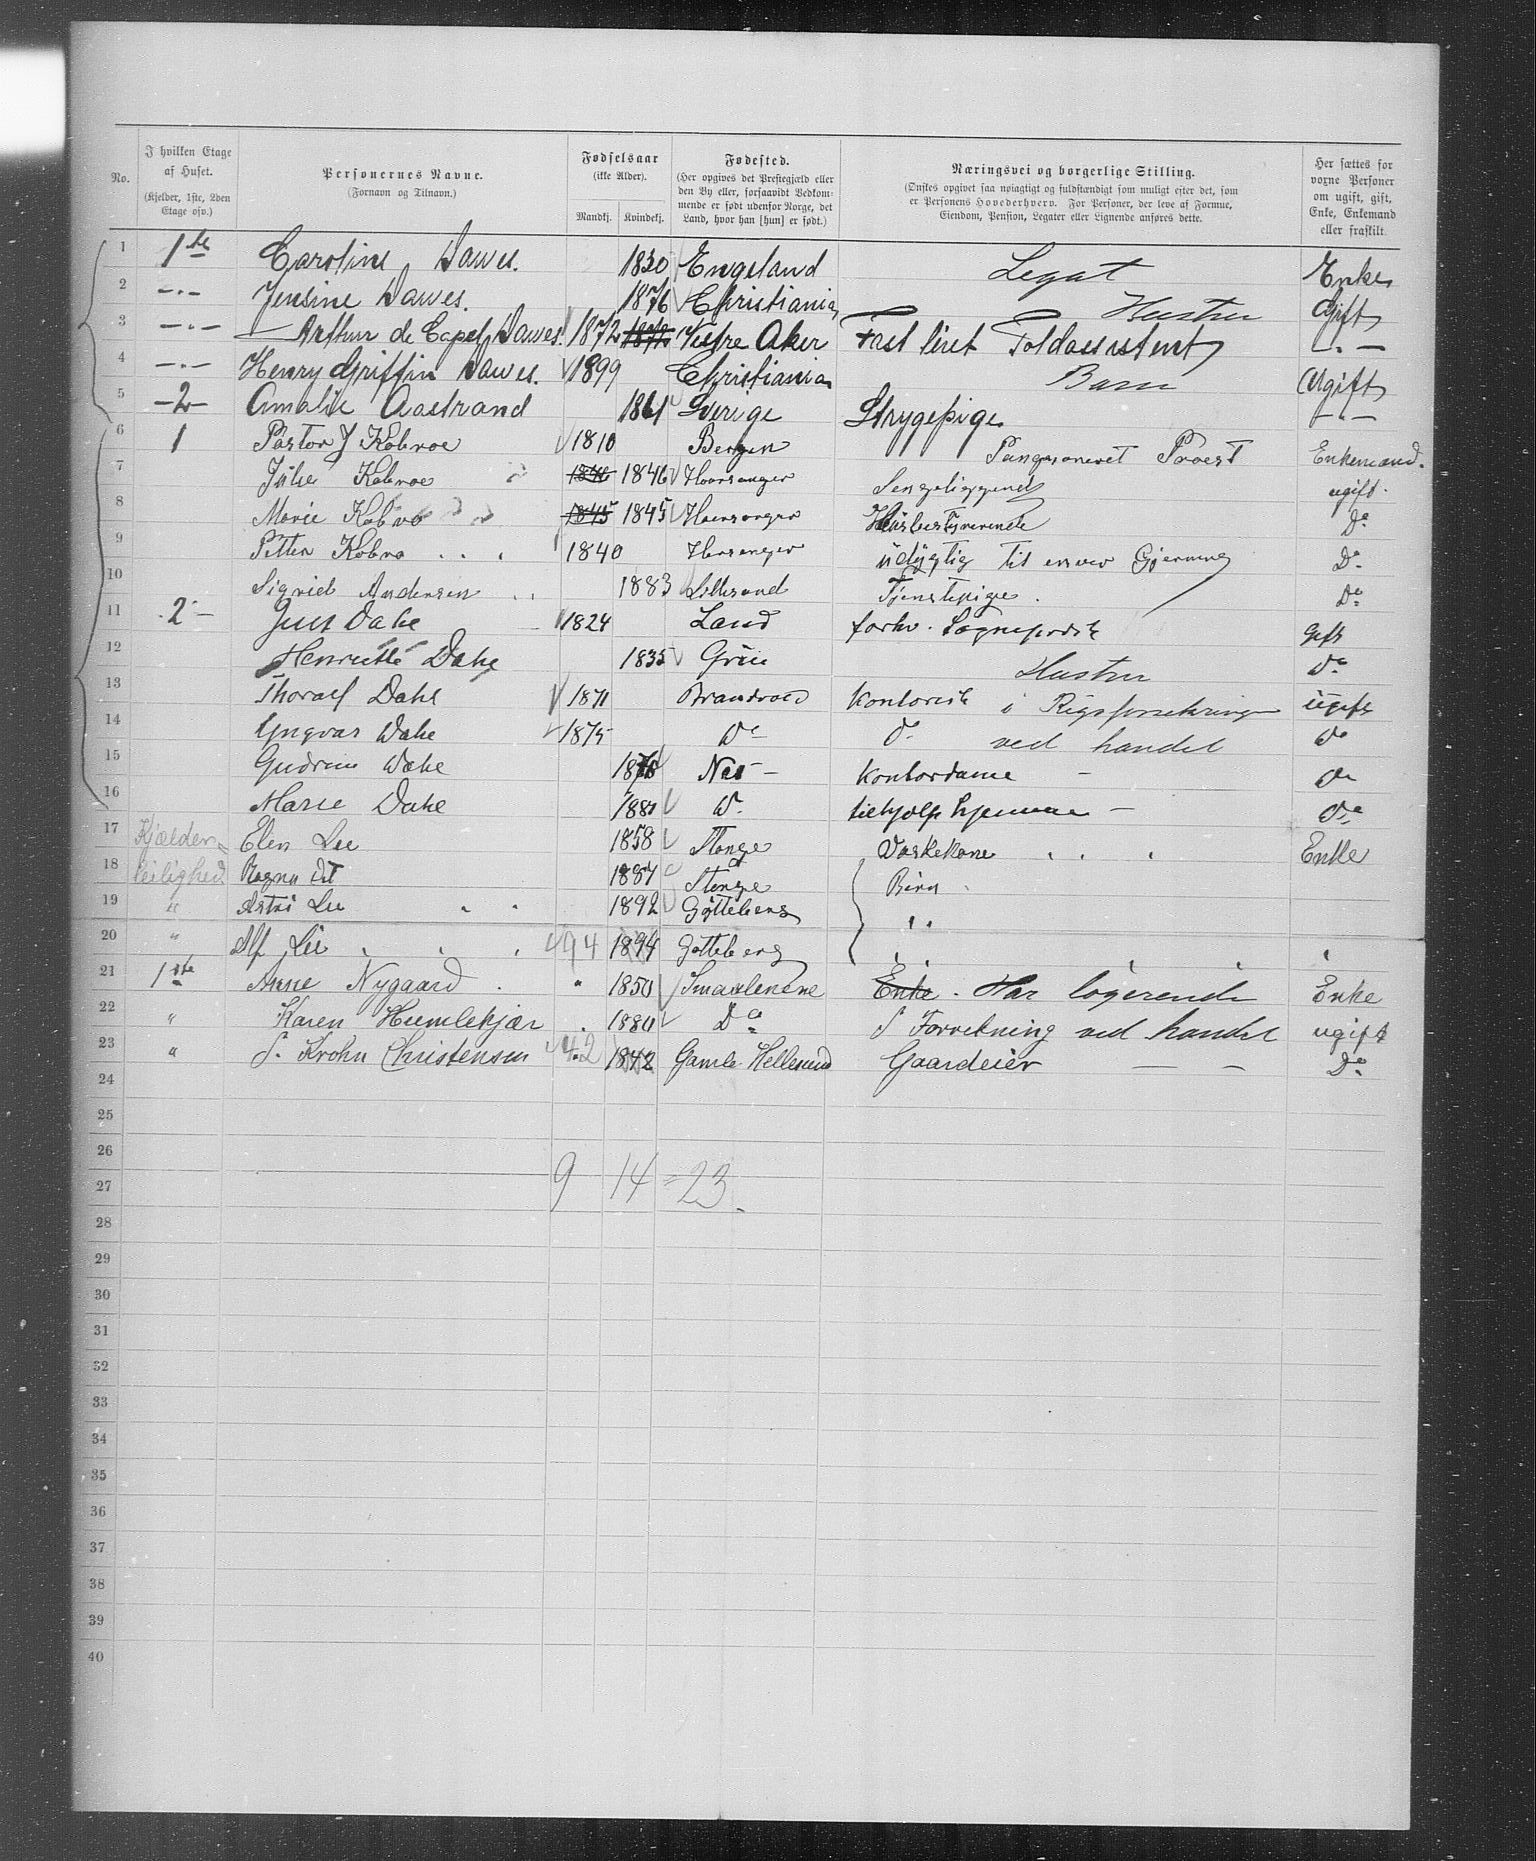 No. I hvilken Etage af Huset. (Kjelder, 1ste, 2den Etage osv.) Personernes Navne. (Fornavn og Tilnavn.) Fødselsaar (ikke Alder). Mandkj. Kvindekj. Fødested. (Her opgives det Prestegjæld eller den By eller, forsaavidt Vedkommende er født udenfor Norge, det Land, hvor han [hun] er født.) Næringsvei og borgerlige Stilling. (Ønskes opgivet saa nøiagtigt og fuldstændigt som muligt efter det, som er Personens Hovederhverv. For Personer, der leve af Formue, Eiendom, Pension, Legater eller Lignende anføres dette. Her sættes for voxne Personer om ugift, gift, Enke, Enkemand eller fraskilt.
1 1ste Caroline Dawes. 1830 Engeland Legat Enke
2 -"- Jensine Dawes. 1876 Christiania Hustru Gift
3 -"- Arthur de Capel Dawes. 1872 1872 Vestre Aker Fast lönet Toldassistent -"-
4 -"- Henry Griffin Dawes. 1899 Christiania Barn Ugift
5 -2- Amalie Aastrand 1861 Sverige Strygepige -"-
6 1 Pastor J Kobroe 1810 Bergen Pangsoneret Proest Enkemand.
7 Julie Kobroe 1846 1846 Hoorsanger Sengeliggende ugift.
8 Marie Kobro 1845 1845 Huusbestyrerende Do
9 Petter Kobro 1840 udygtig til enver Gjerning Do
10 Sigrid Andersen 1883 Lillesand Tjenstepige. Do
11 2 Jens Dahl 1824 Land forhv. Sogneprest gift
12 Henriette Dahl 1835 Grue Hustru Do
13 Thoralf Dahl 1871 Brandvold Kontorist i Rigsforsikringen ugift
14 Yngvar Dahl 1875 Do Do ved handel Do
15 Gudrun Dahl Nes - Kontordame - Do
16 Marie Dahl Do tilhjælp hjemme - Do
17 Kjælder Elen Lie 1858 Stange Vaskekone Enke
18 leilighed Ragna Lie 1887 Stange Børn
19 " Astri Lie 1892 Gøtteberg " "
20 " Alf Lie 94 1894 Gøtteberg
21 1ste Anne Nygaard 1850 Smaalenene Enke. Har logerende Enke
22 " Karen Humlekjær 1880 Do I Forretning ved handel ugift
23 " S. Krohn Christensen 42 1842 Gamle Hellesund Gaardeier - - Do
24
25
26
27 9 14 = 23.
28
29
30
31
32
33
34
35
36
37
38
39
40